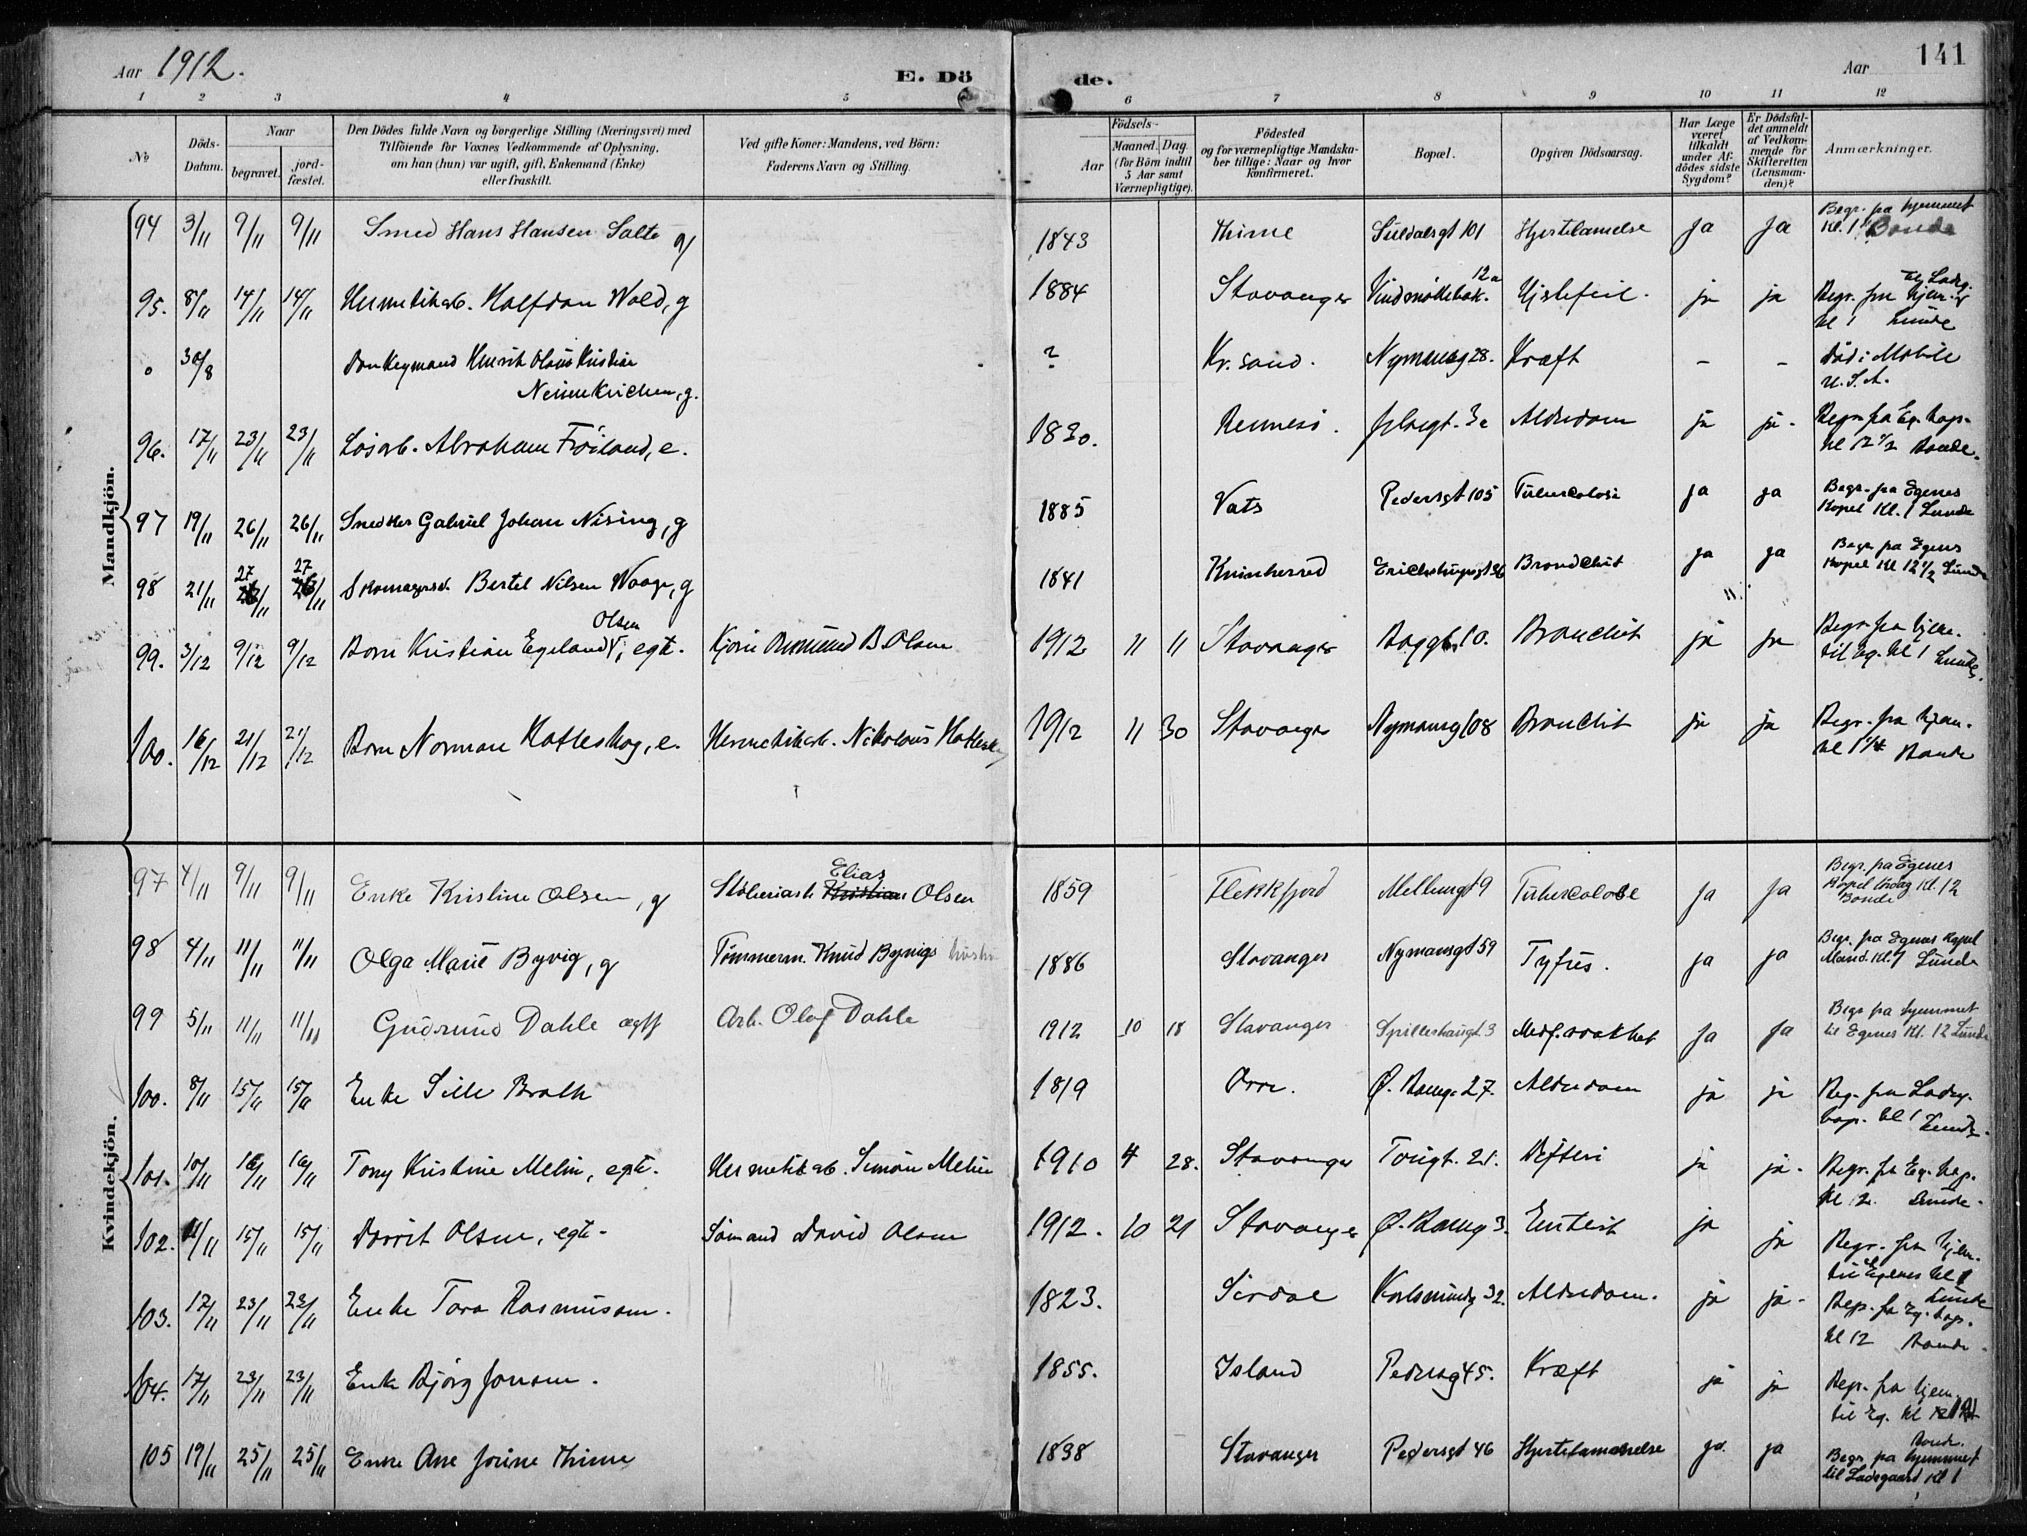 Aar 1912.
E. Dö de.
Aar
141
1 2 3 4 5 6 7 8 9 10 11 12
No
Döds-Datum.
Naar
begravet.
jord-fæstet.
Den Dödes fulde Navn og borgerlige Stilling (Næringsvei) med
Tilföiende for Voxnes Vedkommende af Oplysning,
om han (hun) var ugift, gift, Enkemand (Enke)
eller fraskilt.
Ved gifte Koner: Mandens, ved Börn:
Faderens Navn og Stilling.
Födsels-
Aar
Maaned. Dag.
(for Börn indtil
5 Aar samt
Værnepligtige).
Födested
og for værnepligtige Mandska-
ber tillige: Naar og hvor
konfirmeret.
Bopæl.
Opgiven Dödsaarsag.
Har Læge
været
tilkaldt
under Af-
dödes sidste
Sygdom?
Er Dödsfal-
det anmeldt
af Vedkom-
mende for
Skifteretten
(Lensman-
den)?
Anmærkninger.
Mandkjön.
94 3/11 9/11 9/11 Smed Hans Hansen Salte g 1843 Thime Suldalsgt 101 Hjertelammelse Ja Ja Begr. fra hjemmet Kl. 1 Bonde
95. 8/11 14/11 14/11 Hermetikarb. Halfdan Wold, g 1884 Stavanger Vindmøllebak. 12a Hjertefeil. ja ja Begr. fra hjem. til Ladg. kl 1 Lunde
0 30/8 Donkeymand Henrik Olaus Kristian
Neuenkirchen, g. ? Kr.sand. Nymansg 28. Kræft – – Död i Mobile U.S.A.
96. 17/11 23/11 23/11 Løsarb. Abraham Frøiland, e. 1830. Rennesø. 3a Alderdom ja ja. Begr. fra Eg. kap. kl 12 1/2 Bonde.
97 19/11 26/11 26/11 Gabriel Johan Nising, g 1885 Vats Pedersgt 105 Tuberculose ja ja Begr. fra Egenes Kapel Kl. 1 Lunde
98 21/11 27/11 27/11 Bertel Nilsen Waage, g 1841 Kvinherred Bronchit ja ja Begr. fra Egenes Kapel Kl 12 1/2 Lunde
99. 3/12 9/12 9/12 Barn Kristian Egeland Olsen, egte. B. Olsen 1912 11 11 Stavanger 10. Bronchit ja ja Begr. fra hjem. til Eg. kl 1 Lunde.
100. 16/12 21/12 21/12 Barn Norman Hatleskog, e. Hermetikarb. Nikolaus Hatleskog 1912 11 30 Stavanger Nymansg 108 Bronchit ja ja Begr. fra hjem. kl 1 1/4 Bonde
Kvindekjön.
97 4/11 9/11 9/11 Enke Kristine Olsen, g Støberiarb. Elias Olsen 1859 Flekkfjord Mellumgt 9 Tuberculose Ja Ja Begr. fra Egenes Kapel Kl. 12 Bonde
98 4/11 11/11 11/11 Olga Marie Byvig, g Tømmerm. Knud Byvigs hustru 1886 Stavanger Nymansgt 59 Tyfus. ja ja Begr. fra Egenes Kapel Mand. Kl. 1 Lunde
99 5/11 11/11 11/11 Gudrund Dahle Arb. Olaf Dahle 1912 10 18 Stavanger Spilderhaugt 3 Medf. svakhet Ja Ja Begr fra hjemmet til Egenes Kl. 12 Lunde
100. 8/11 15/11 15/11 Enke Sille 1819 Orre. Ø. 27. Alderdom ja ja Begr. fra Ladeg. kap. kl 1 Lunde.
101. 10/11 16/11 16/11 Tony Kristine Melin, egte. Hermetikarb. Simon Melin 1910 4 28. Stavanger Torvgt. 21. Difteri ja ja. Begr. fra Eg. kap. kl 12. Lunde.
102. 11/11 15/11 15/11 Dorrit Olsen, egte. Sømand David Olsen 1912. 10 21 Stavanger Ø. 3. Enterit ja ja Begr. fra hjem. til Egenes kl 1 Lunde
103. 17/11 23/11 23/11 Enke Tora Rasmussen. 1823. Sirdal Karlsmindeg 32. Alderdom. ja ja. Begr. fra Eg. kap. kl 12 Bonde.
104. 17/11 23/11 23/11 Enke Bjørg Jonsen. 1855. Island Pedersg 45. Kræft ja ja Begr. fra hjem. til Eg. kl Bonde.
105 19/11 25/11 25/11 Enke Ane Jorine Thime 1838 Stavanger Pedersgt 46 Hjertelammelse ja ja Begr. fra hjemmet til Ladegaard Kl 1